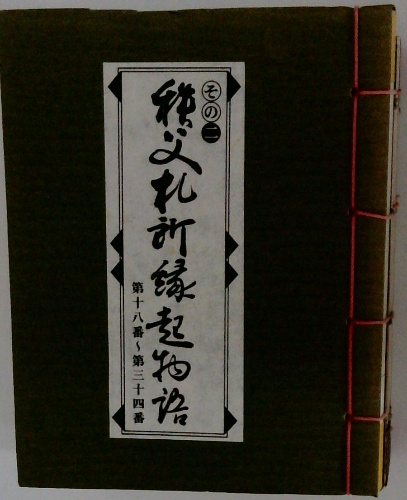 その二
秩父札所縁起物語
第十八番~第三十四番